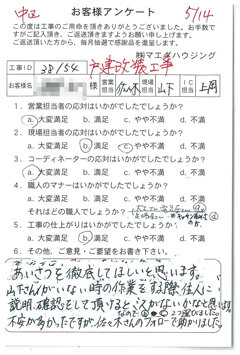 中区
お客様アンケート
5/14
この度は工事のご用命を頂きありがとうございました。お手数で
すがご記入頂き、ご返送頂きますようお願い申し上げます。
ご返送頂いた方から、毎月抽選で感謝品を進呈します。
㈱マエダハウジング
工事ID 38154 戸建改装工事
お客様名 様 営業担当 佐々木 現場担当 山下 IC担当 上岡
1. 営業担当者の応対はいかがでしたでしょうか?
a.大変満足 b.満足 c.やや不満 d.不満
2. 現場担当者の応対はいかがでしたでしょうか?
a.大変満足 b.満足 c.やや不満 d.不満
3. コーディネーターの応対はいかがでしたでしょうか?
a.大変満足 b.満足 c.やや不満 d.不満
4. 職人のマナーはいかがでしたでしょうか?
a.大変満足 b.満足 c.やや不満 d.不満
それはどの職人でしょうか?
5. 工事の仕上がりはいかがでしたでしょうか?
a.大変満足 b.満足 c.やや不満 d.不満
6. その他、ご意見・ご要望をお書き下さい。
あいさつを徹底してほしいと思います。
山下さんがいない時の作業をする際、住人に
説明、確認をして頂けるとミスがないかなと思い
不安が多かったですが、佐々木さんのフォローで助かりました。